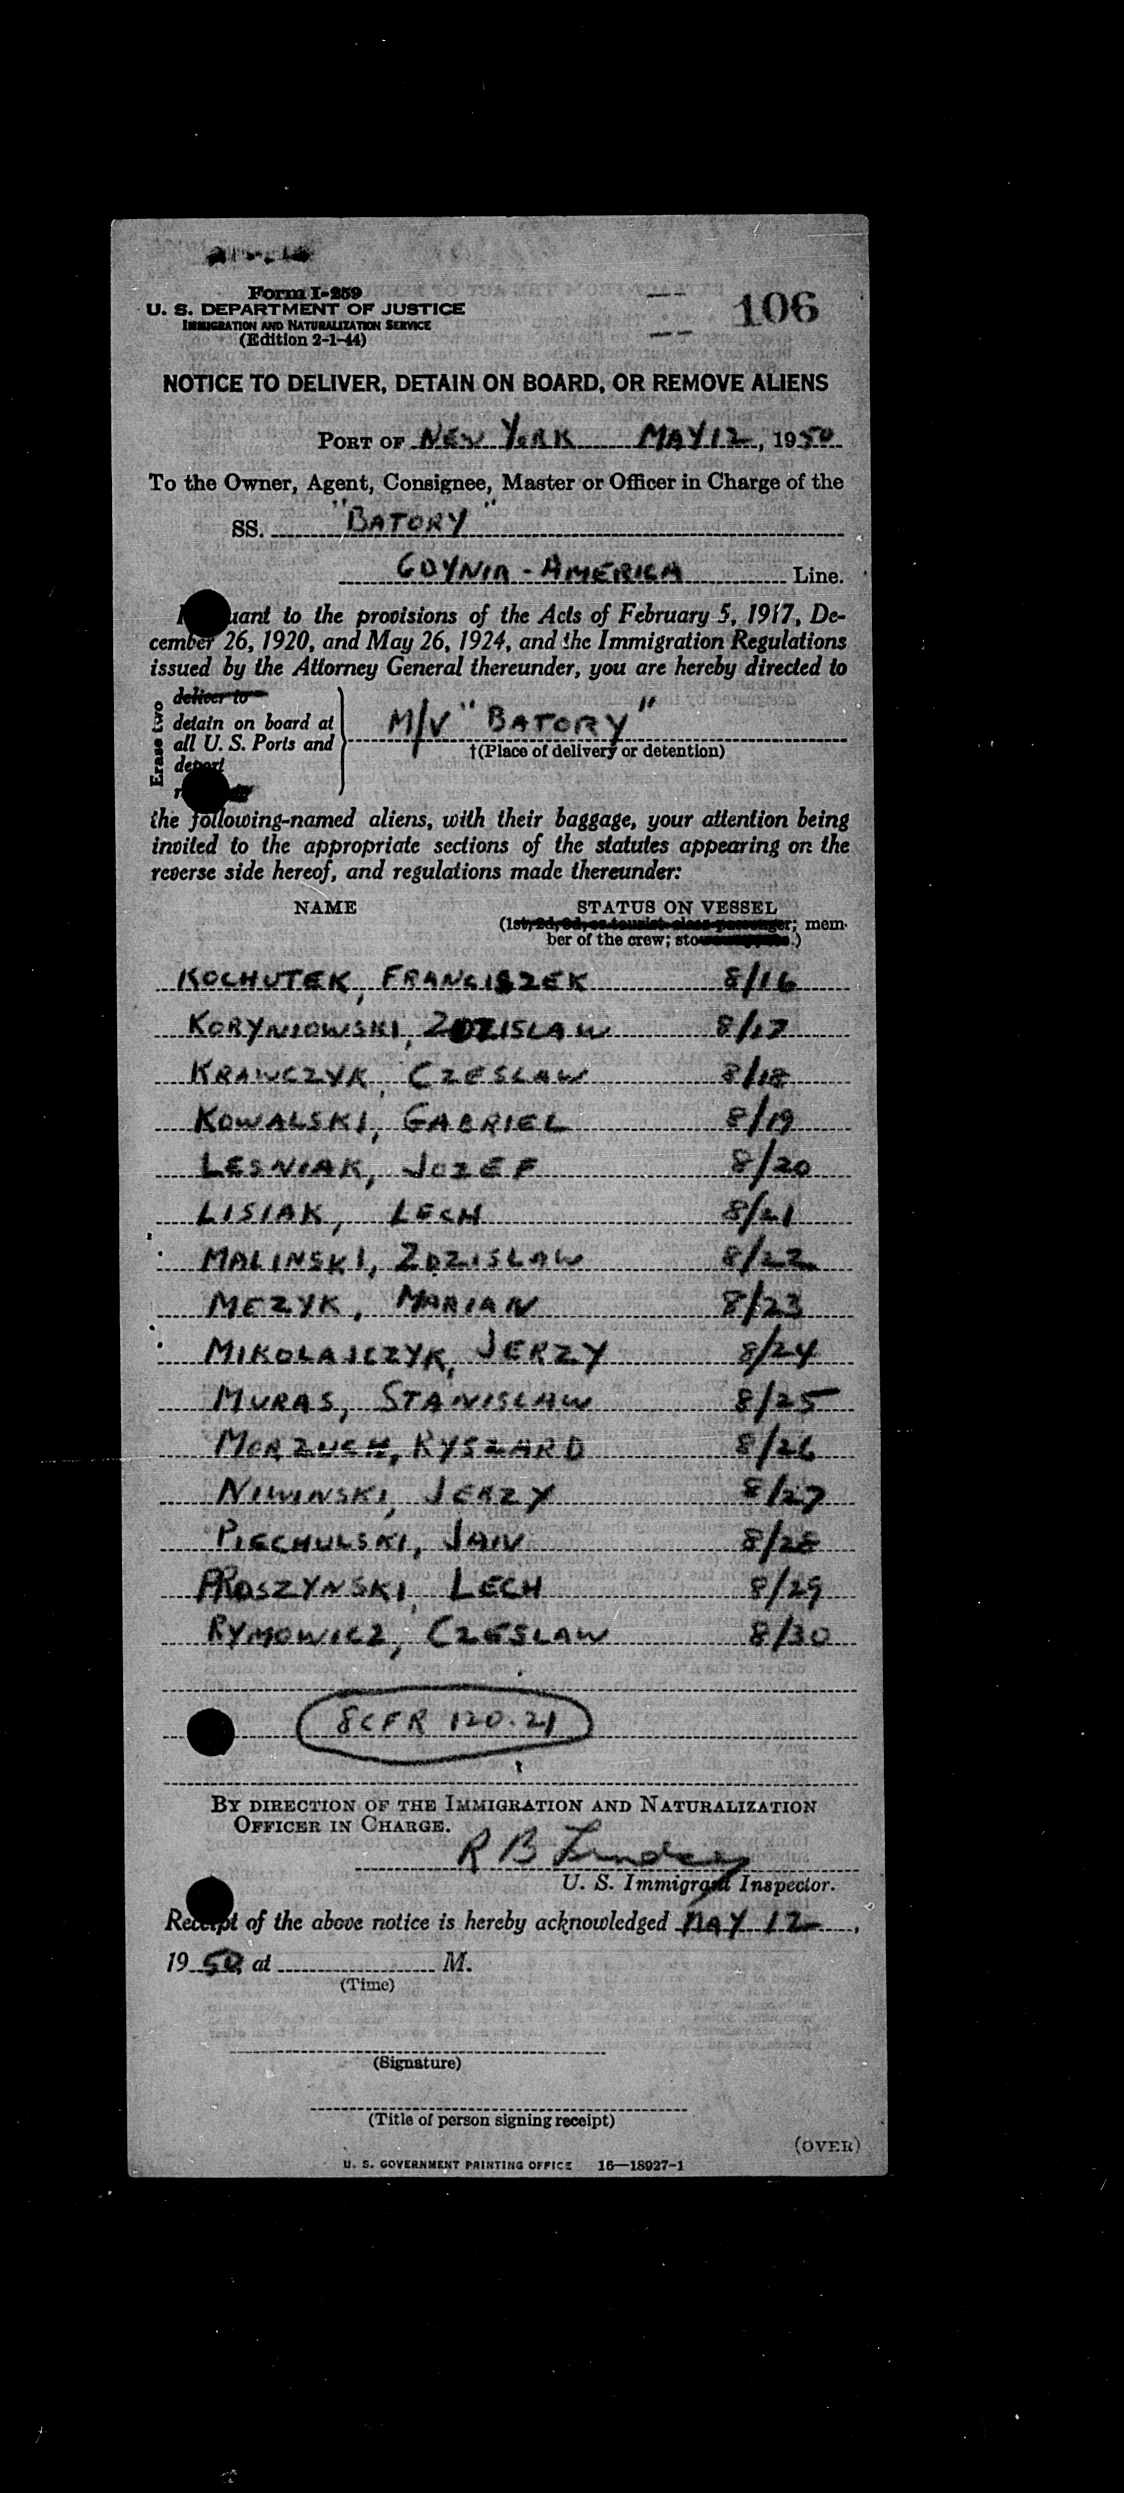 Form I-259
U. S. DEPARTMENT OF JUSTICE
IMMIGRATION AND NATURALIZATION SERVICE
(Edition 2-1-44)
106
NOTICE TO DELIVER, DETAIN ON BOARD, OR REMOVE ALIENS
PORT OF NEW YORK MAY 12, 1950
To the Owner, Agent, Consignee, Master or Officer in Charge of the
SS. "BATORY"
GDYNIA - AMERICA Line.
uant to the provisions of the Acts of February 5, 1917, De-
cember 26, 1920, and May 26, 1924, and the Immigration Regulations
issued by the Attorney General thereunder, you are hereby directed to
Erase two
deliver to
detain on board at
all U. S. Ports and
deport
M/V "BATORY"
†(Place of delivery or detention)
the following-named aliens, with their baggage, your attention being
invited to the appropriate sections of the statutes appearing on the
reverse side hereof, and regulations made thereunder:
NAME STATUS ON VESSEL
(1st, 2d, 3d, or tourist class passenger; mem-
ber of the crew; stowaway, etc.)
KOCHUTEK, FRANCISZEK 8/16
KORYNIOWSKI, ZDZISLAW 8/17
KRAWCZYK, CZESLAW 8/18
KOWALSKI, GABRIEL 8/19
LESNIAK, JOZEF 8/20
LISIAK, LECH 8/21
MALINSKI, ZDZISLAW 8/22
MEZYK, MARIAN 8/23
MIKOLAJCZYK, JERZY 8/24
MURAS, STANISLAW 8/25
MORZUCH, RYSZARD 8/26
NIWINSKI, JERZY 8/27
PIECHULSKI, JAN 8/28
PROSZYNSKI, LECH 8/29
RYMOWICZ, CZESLAW 8/30
8 CFR 120.21
BY DIRECTION OF THE IMMIGRATION AND NATURALIZATION
OFFICER IN CHARGE.
R B Lindsey
U. S. Immigrant Inspector.
Receipt of the above notice is hereby acknowledged MAY 12,
1950, at M.
(Time)
(Signature)
(Title of person signing receipt)
(OVER)
U. S. GOVERNMENT PRINTING OFFICE 16—18927-1